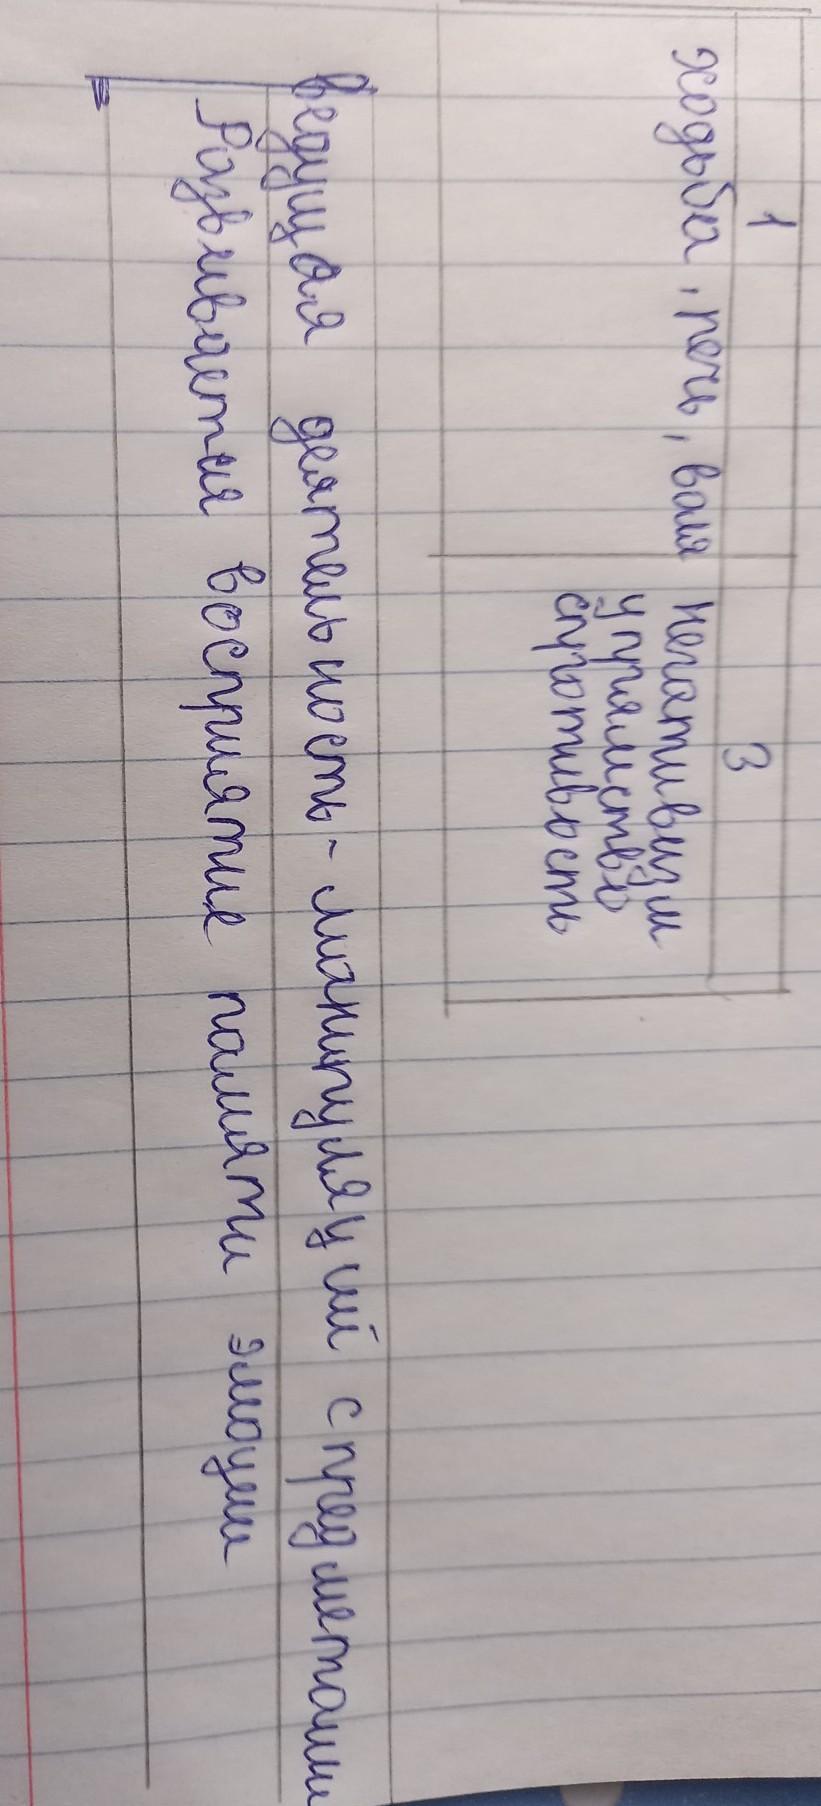 1
3
ходьба, печь, воля
негативизм
упрямство
спротивость
Ведущая деятельность - манипуляуий с предметами
Развивается восприятие памяти эмоции